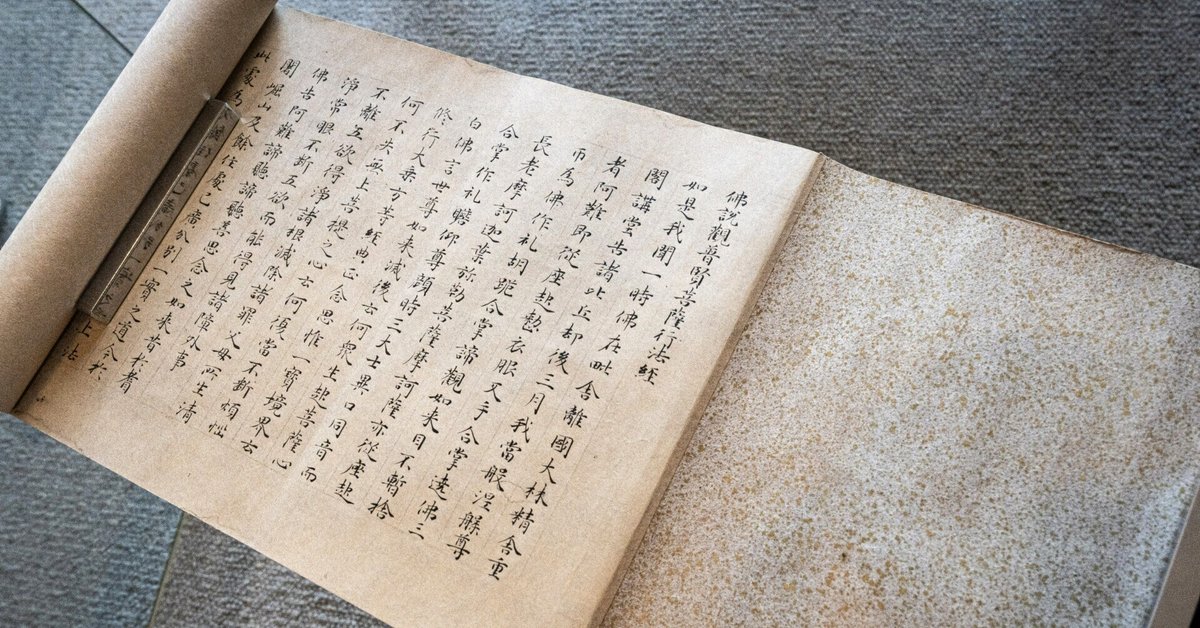 佛說觀普賢菩薩行法經
如是我聞一時佛在毗舍離國大林精舍重
閣講堂告諸比丘却後三月我當般涅槃尊
者阿難即從座起整衣服叉手合掌遶佛三
帀為佛作礼胡跪合掌諦觀如來目不暫捨
長老摩訶迦葉弥勒菩薩摩訶薩亦從座起
合掌作礼瞻仰尊顏時三大士異口同音而
白佛言世尊如來滅後云何衆生起菩薩心
修行大乘方等經典正念思惟一實境界云
何不失無上菩提之心云何復當不斷煩惱
不離五欲得淨諸根滅除諸罪父母所生清
淨常眼不斷五欲而能得見諸障外事
佛告阿難諦聽諦聽善思念之如來昔於耆
闍崛山及餘住處已廣分別一實之道今於
此處為